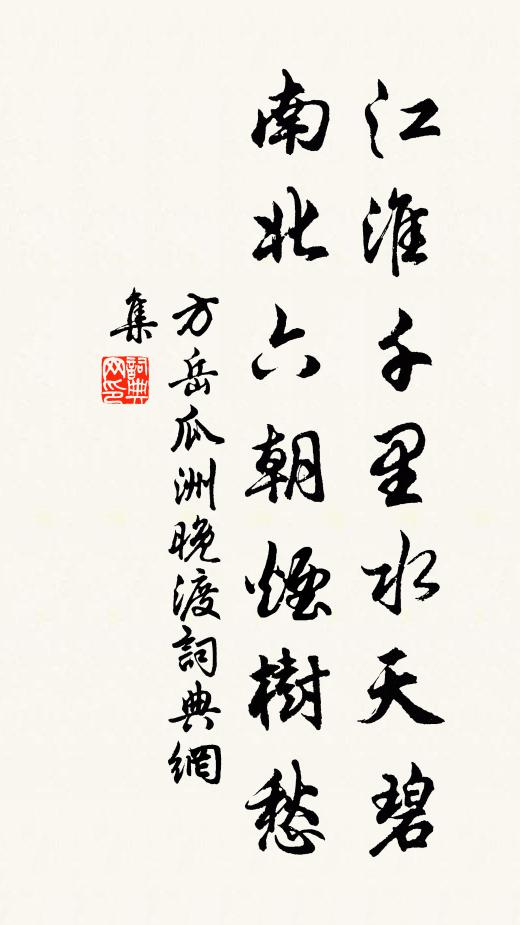 江淮千里水天碧
南北六朝煙樹愁
方岳瓜洲晚渡詞典網
集
詞典网印